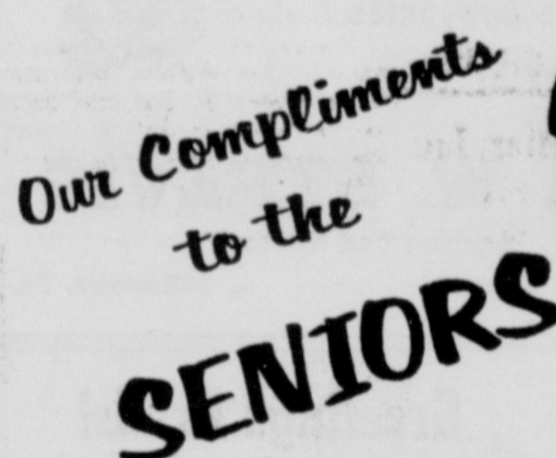 Our Compliments
to the
SENIORS